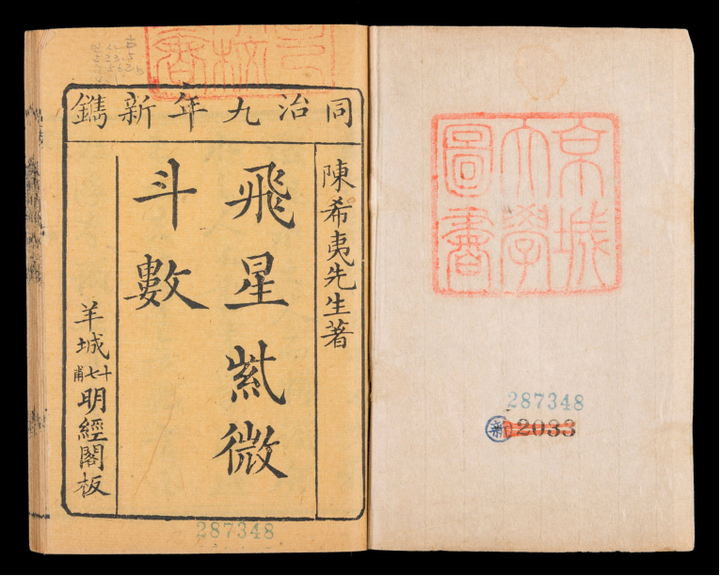 同治九年新鐫
陳希夷先生著
飛星紫微
斗數
羊城十七甫明經閣板
287348
京城
大學
圖書
287348
新 2033